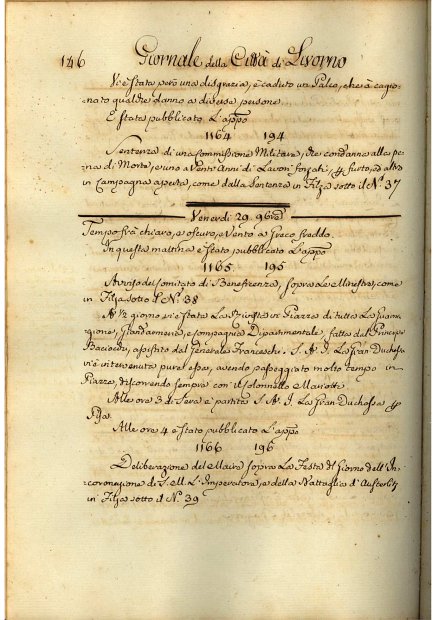 146 Giornale della Città di Livorno
Vi è stata però una disgrazia, è caduto un Palco, che à cagio-
nato qualche danno a diverse persone.
È stato pubblicato L'appo
1164 194
Sentenza di una Commissione Militare, che condanna alla pe-
na di Morte, e uno a Venti Anni di Lavori forzati, p furto, ed altro
in Campagna aperta, come dalla Sentenza in Filza sotto il N.° 37
Venerdì 29. 9bre
Tempo frà chiaro, e oscuro, e Vento a Greco freddo.
In questa mattina è stato pubblicato L'appo
1165. 195
Avviso del Comitato di Beneficenza, sopra Le Minestre, come
in Filza sotto il N.° 38
A 1/2 giorno vi è stata La Rivista in Piazza di tutta La Guarni-
gione, Giandarmeria, e Compagnia Dipartimentale, fatta dal Principe
Baciocchi, assistito dal Generale Franceschi. S. A. I. La Gran Duchessa
vi è intervenuta pure essa, avendo passeggiato molto tempo in
Piazza, discorrendo sempre con il Colonnello Mariotti.
Alle ore 3 di Sera è partita S. A. I. La Gran Duchessa p
Pisa.
Alle ore 4 è stato pubblicato L'appo
1166 196
Deliberazione del Maire sopra La Festa del Giorno dell'In-
coronazione di S. M. L'Imperatore, e della Battaglia d'Austerlitz
in Filza sotto il N.° 39